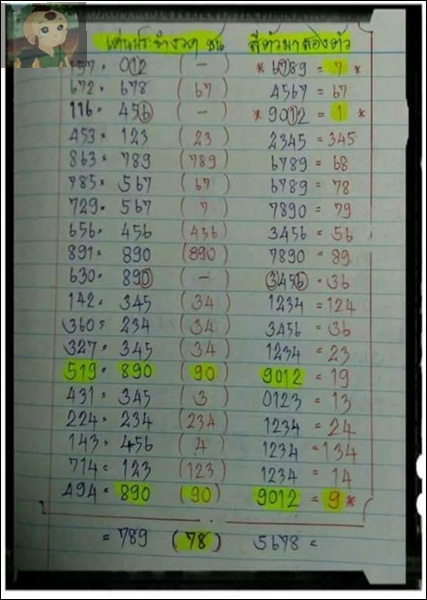 เด่นประจำงวด ชน สี่ตัวมาสองตัว
157 = 012 ( - ) * 6789 = 7 *
672 = 678 ( 67 ) 4567 = 67
116 = 456 ( - ) * 9012 = 1 *
453 = 123 ( 23 ) 2345 = 345
863 = 789 ( 789 ) 6789 = 68
785 = 567 ( 67 ) 6789 = 78
729 = 567 ( 7 ) 7890 = 79
656 = 456 ( 456 ) 3456 = 56
891 = 890 ( 890 ) 7890 = 89
630 = 890 ( - ) 3456 = 36
142 = 345 ( 34 ) 1234 = 124
360 = 234 ( 34 ) 3456 = 36
327 = 345 ( 34 ) 1234 = 23
519 = 890 ( 90 ) 9012 = 19
431 = 345 ( 3 ) 0123 = 13
224 = 234 ( 234 ) 1234 = 24
143 = 456 ( 4 ) 1234 = 134
714 = 123 ( 123 ) 1234 = 14
494 = 890 ( 90 ) 9012 = 9 *
= 789 ( 78 ) 5678 =